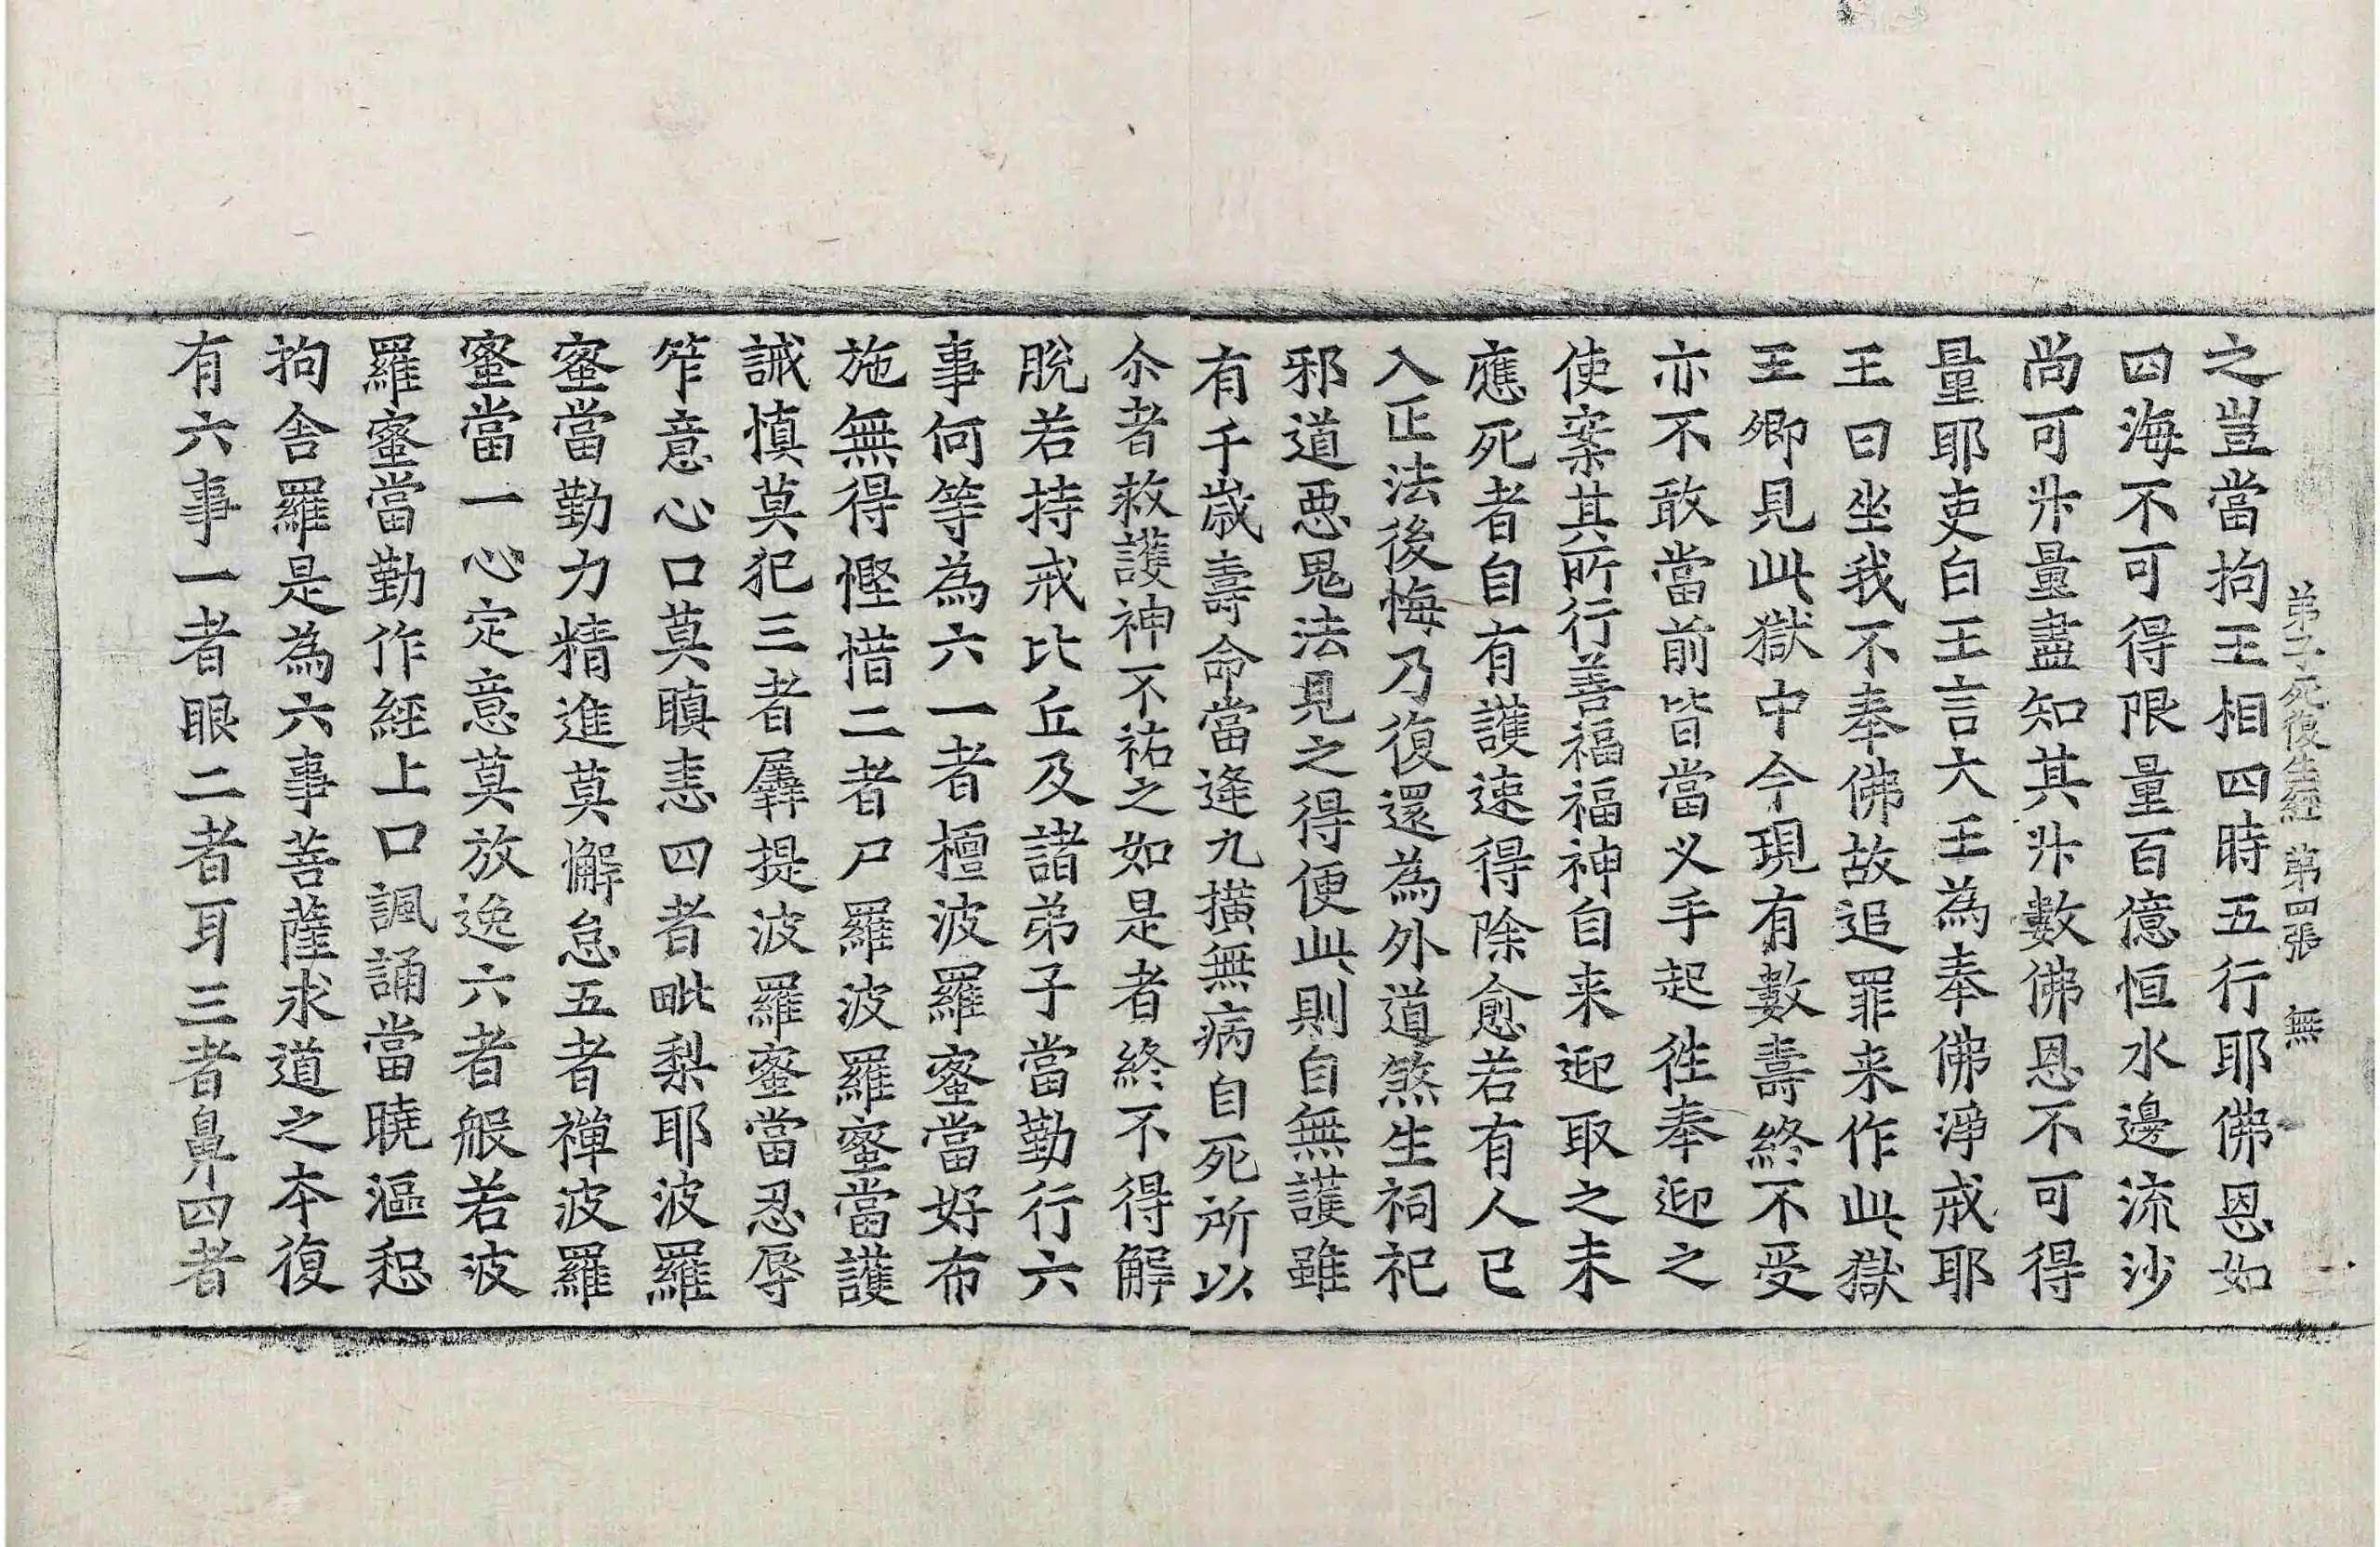 弟子死復生經 第四張 無
之豈當拘王相四時五行耶佛恩如
四海不可得限量百億恒水邊流沙
尚可㪷量盡知其㪷數佛恩不可得
量耶吏白王言大王為奉佛淨戒耶
王曰坐我不奉佛故追罪来作此獄
王卿見此獄中今現有數壽終不受
亦不敢當前皆當义手起徃奉迎之
使案其所行善福福神自来迎取之未
應死者自有護速得除愈若有人已
入正法後悔乃復還為外道煞生祠祀
邪道悪鬼法見之得便此則自無護雖
有千歲壽命當逢九撗無病自死所以
尒者救護神不祐之如是者終不得解
脫若持戒比丘及諸弟子當勤行六
事何等為六一者檀波羅蜜當好布
施無得慳惜二者尸羅波羅蜜當護
誡慎莫犯三者羼提波羅蜜當忍辱
笮意心口莫瞋恚四者毗梨耶波羅
蜜當勤力精進莫懈怠五者禪波羅
蜜當一心定意莫放逸六者般若波
羅蜜當勤作經上口諷誦當曉漚惒
拘舍羅是為六事菩薩求道之夲復
有六事一者眼二者耳三者鼻四者